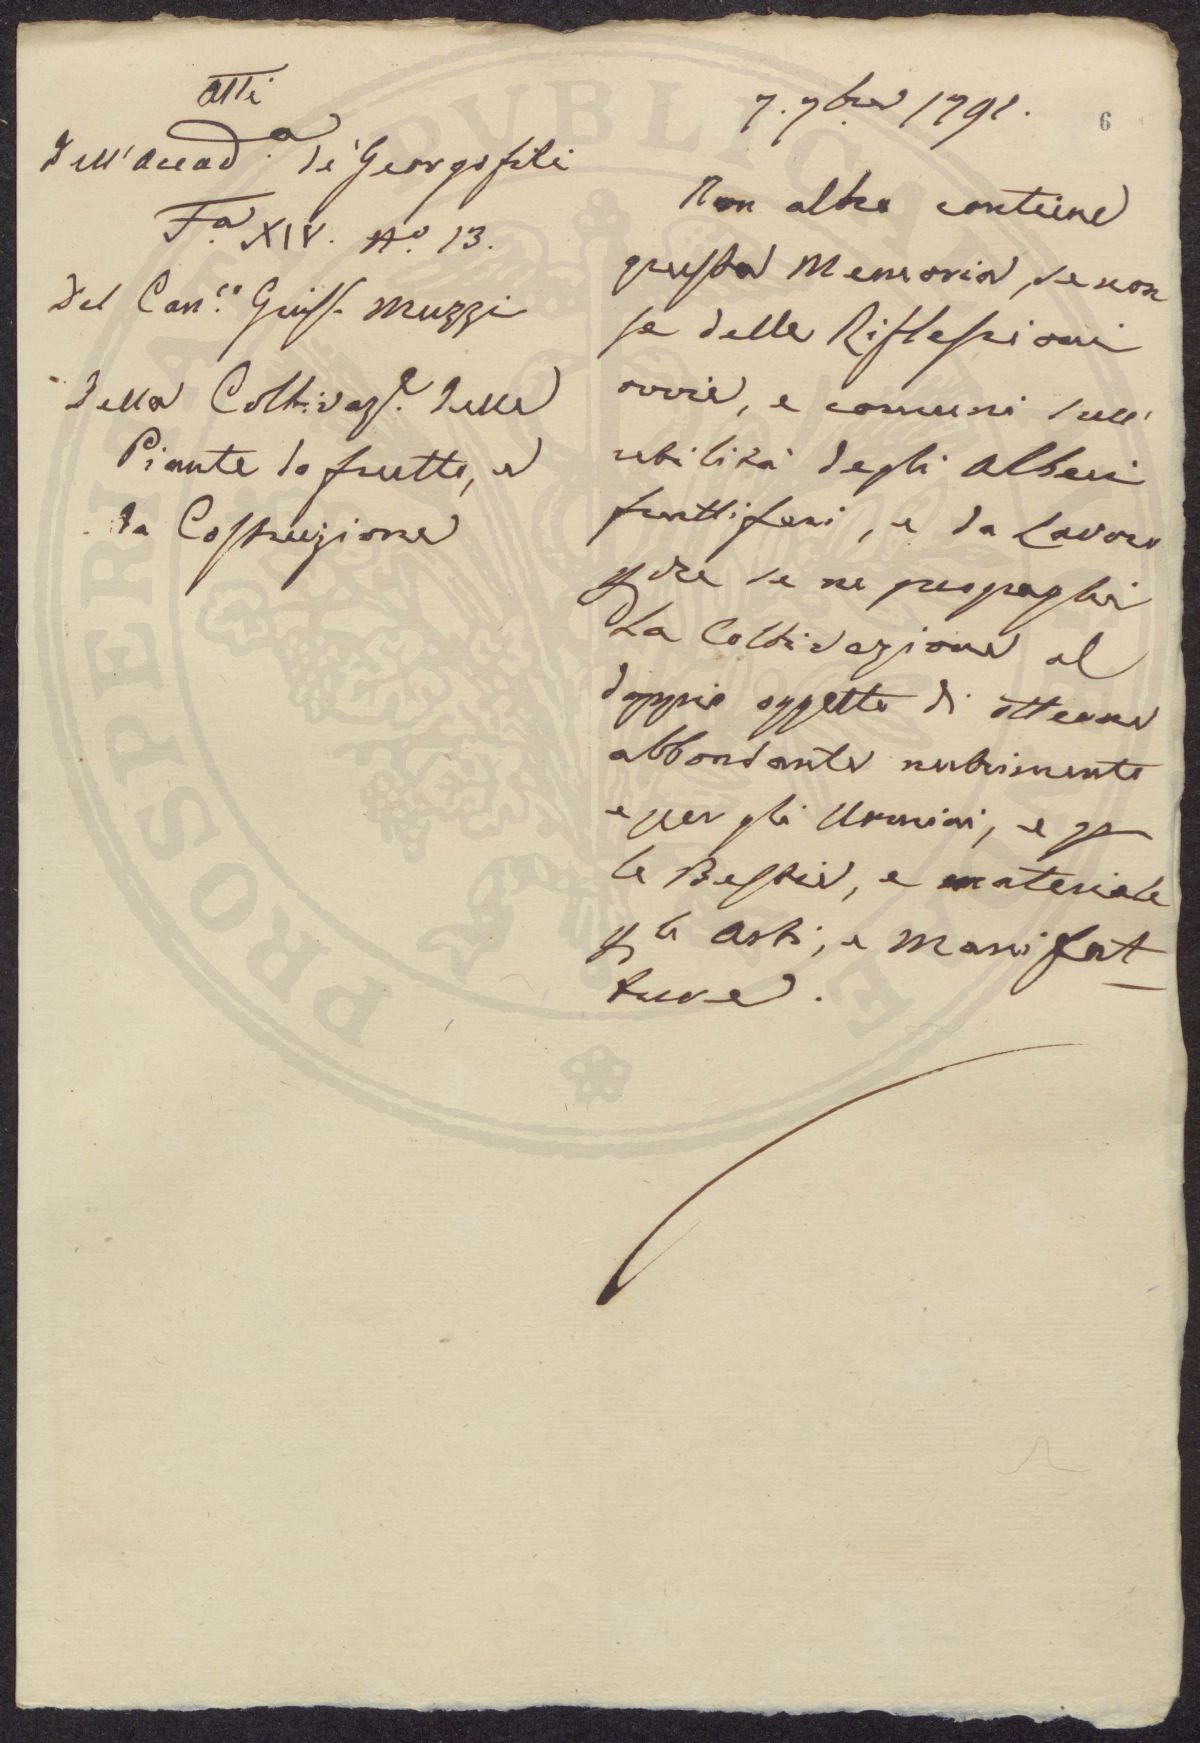 Atti
Dell'Accad.a de' Georgofili
F.a XIV. N.o 13.
Del Can.co Giuss. Muzzi
Della Coltivaz.e delle
Piante da frutto, e
da Costruzione
7. 7bre 1791.
6
Non altro contiene
questa Memoria, se non
se delle Riflessioni
ovvie, e comuni sull'
utilità degli Alberi
fruttiferi, e da Lavoro
che se ne propaghi
La Coltivazione al
doppio oggetto di ottenere
abbondante nutrimento
e per gli Uomini, e p
le Bestie, e materiale
p le Arti, e Manifat
ture.
PROSPERITATI PUBLICAE AUGENDAE